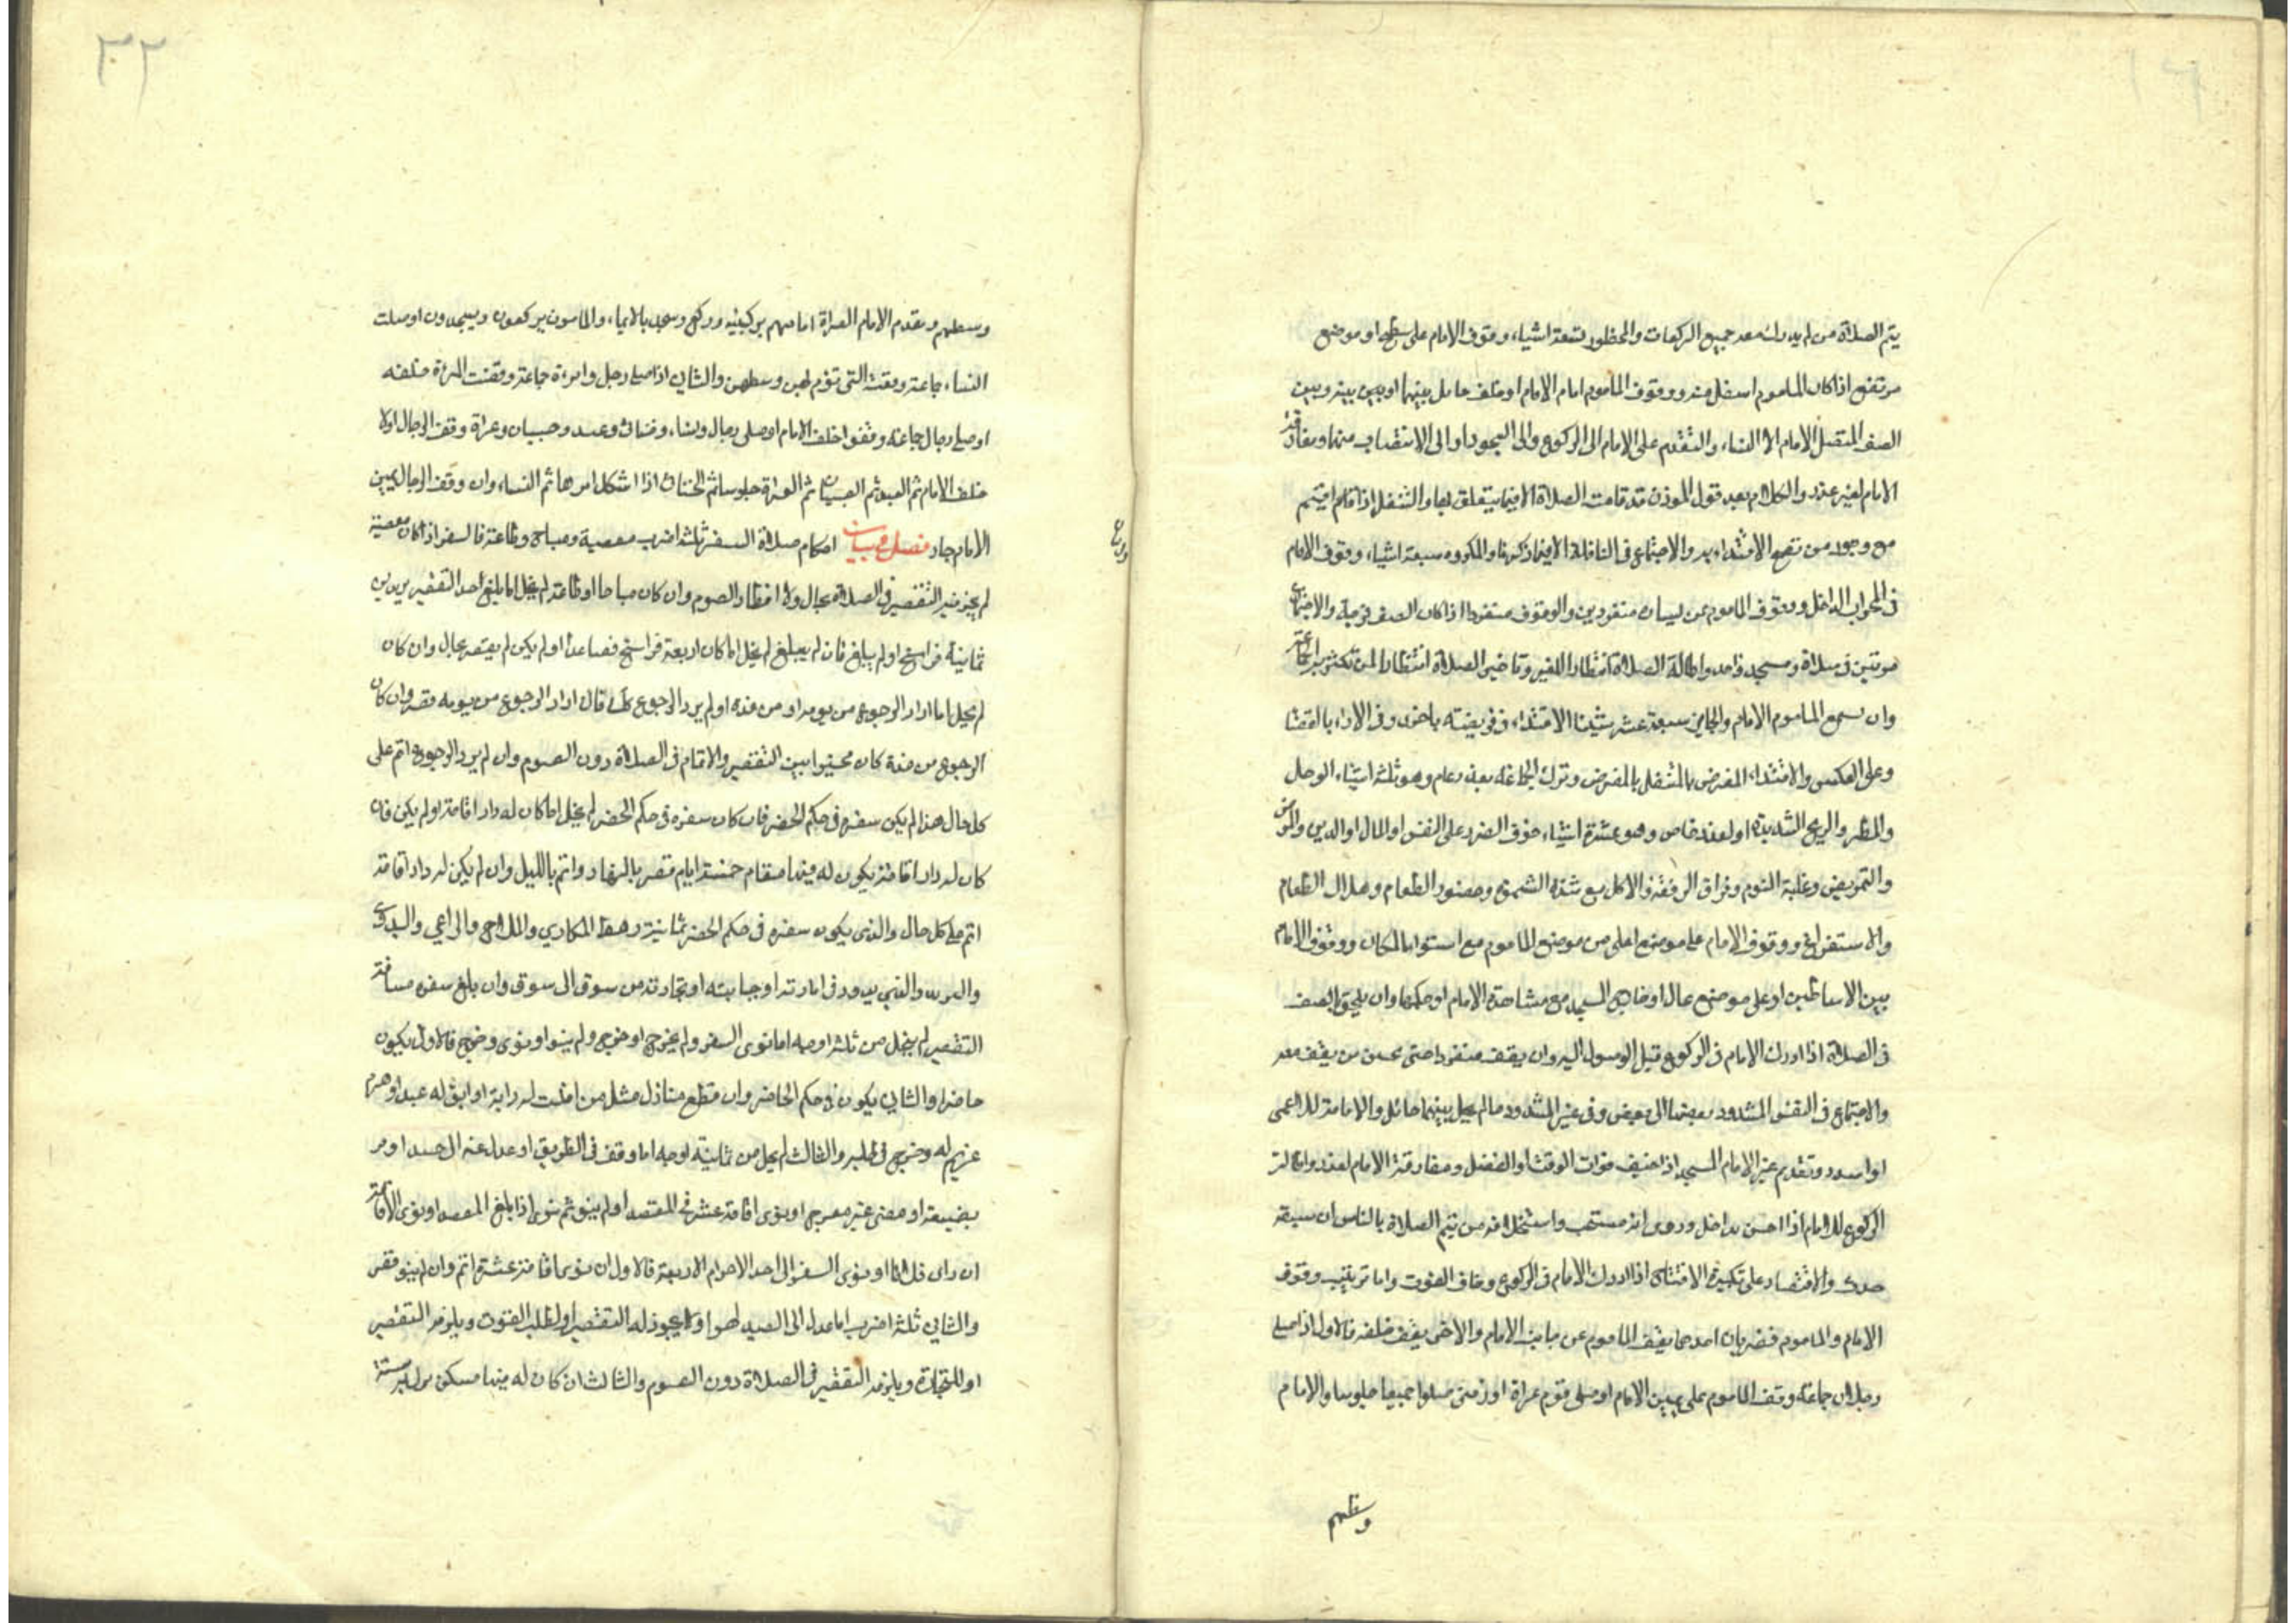 يتم الصلاة من لم يدرك معه جميع الركعات والمحظور تسعة اشياء وقوف الامام على سطح او موضع
مرتفع اذا كان الماموم اسفل منه ووقوف الماموم امام الامام او خلف حايل بينهما او بين بينه وبين
الصف المتصل الامام الا النساء والتقدم على الامام الى الركوع والى السجود او الى الانتصاب منهما ومفارقة
الامام لغير عذر والكلام بعد قول الموذن قد قامت الصلاة الا فيما يتعلق بها والتنفل اذا قام اقيتم
مع وجود من تصح الاقتداء به والاجتماع في النافلة الا فيما ذكرنا والمكروه سبعة اشياء وقوف الامام
في المحراب الداخل ووقوف الماموم عن يساره منفردين والوقوف منفردا اذا كان الصف فرجة والاجتماع
مرتين في صلاة ومسجد واحد واطالة الصلاة انتظارا للغير وتاخير الصلاة انتظارا لمن تكثر به الجماعة
وان يسمع الماموم الامام والجايز سبعة عشر شيئا الاقتداء في فريضة باخرى وفي الاداء بالقضا
وعلى العكس والاقتداء المفترض بالمتنفل بالمفترض وترك الجماعة بعذر عام وهو ثلثة اشياء الوحل
والمطر والريح الشديدة او لعذر خاص وهو عشرة اشياء خوف الضرر على النفس او المال او الدين والمرض
والتمريض وغلبة النوم وفراق الرفقة والاكل مع شدة الشهوة وحضور الطعام وهلاك الطعام
والاستفراغ ووقوف الامام على موضع اعلى من موضع الماموم مع استواء المكان ووقوف الامام
بين الاساطين او على موضع عال او خارج المسجد مع مشاهدة الامام او حكمها وان يلحق بالصف
في الصلاة اذا ادرك الامام في الركوع قبل الوصول اليه وان يقف منفردا حتى يحسن من يقف معه
والاجتماع في السفن المشدود بعضها الى بعض وفي غير المشدود ما لم يحل بينهما حائل والامامة للاعمى
وتقدم غير الامام المسجد اذا خيف فوات الوقت او الفضل ومفارقة الامام لعذر واطالة
الركوع للامام اذا احس بداخل وروى انه مستحب واستخلافه من يتم الصلاة بالناس ان سبقه
حدث والاقتصار على تكبيرة الافتتاح اذا ادرك الامام في الركوع وخاف الفوت واما ترتيب وقوف
الامام والماموم فضربان احدهما يقف الماموم عن جانب الامام والاخر يقف خلفه فالاول اذا صلى
رجلان جماعة وقف الماموم على يمين الامام او صلى قوم عراة او زمنى صلوا جميعا جلوسا والامام
وسطهم
وسطهم وتقدم الامام العراة امامهم بركبتيه وركع وسجد بالايماء والمامون يركعون ويسجدون او صلت
النساء جماعة وقفت التي تؤم لهن وسطهن والثاني اذا صلى رجل وامرءة جماعة وقفت المرءة خلفه
او صلى رجال جماعة وقفوا خلف الامام او صلى رجال ونساء وخناث وعبيد وصبيان وعراة وقف الرجال اولا
خلف الامام ثم العبيد ثم الصبيان ثم العراة جلوسا ثم الخناث اذا اشكل امرها ثم النساء وان وقف الرجال يمين
الامام جاز فصل في بيان احكام صلاة السفر ثلثة اضرب معصية ومباح وطاعة فالسفر اذا كان معصية
لم يجز فيه التقصير في الصلاة بحال ولا افطار الصوم وان كان مباحا او طاعة لم يخل اما يبلغ احد التقصير بريدين
ثمانية فراسخ او لم يبلغ فان لم يبلغ لم يخل اما كان اربعة فراسخ فصاعدا او لم يكن لم يقصر بحال وان كان
لم يخل اما اراد الرجوع من يومه او من غده او لم يرد الرجوع قال اراد الرجوع من يومه قصر وان كان
الرجوع من غده كان مخيرا بين التقصير والاتمام في الصلاة دون الصوم وان لم يرد الرجوع اتم على
كل حال هذا لم يكن سفره في حكم الحضر فان كان سفره في حكم الحضر لم يخل اما كان له دار اقامة او لم يكن فان
كان له دار اقامة يكون له فيها مقام خمسة ايام قصر بالنهار واتم بالليل وان لم يكن له دار اقامة
اتم على كل حال والذى يكون سفره في حكم الحضر ثمانية رهط المكاري والملاح والراعي والبدوى
والبريد والذي يدور في امارته او جبايته او تجارته من سوق الى سوق وان بلغ سفره مسافة
التقصير لم يخل من ثلثة اوجه اما نوى السفر ولم يخرج او خرج ولم ينو او نوى وخرج فالاول يكون
حاضرا والثاني يكون في حكم الحاضر وان قطع منازل مثل من افلت له دابة او ابق له عبد او هرب
غريم له وخرج في طلبه والثالث لم يخل من ثمانية اوجه اما وقف في الطريق او عدل عنه الى صيد او مر
بضيعة او مضى غير معرج او نوى اقامة عشر في المقصد او لم ينو ثم نوى اذا بلغ المقصد او نوى الاقامة
ان راى فلانا او نوى السفر الى احد الاحرام الاربعة فالاول ان نوى اقامة عشرة اتم وان لم ينو قصر
والثاني ثلثة اضرب اما عدل الى الصيد لهوا ولا يجوز له التقصير او لطلب القوت ويلزمه التقصير
او للتجارة ويلزمه التقصير في الصلاة دون الصوم والثالث ان كان له فيها مسكن نزله ستة